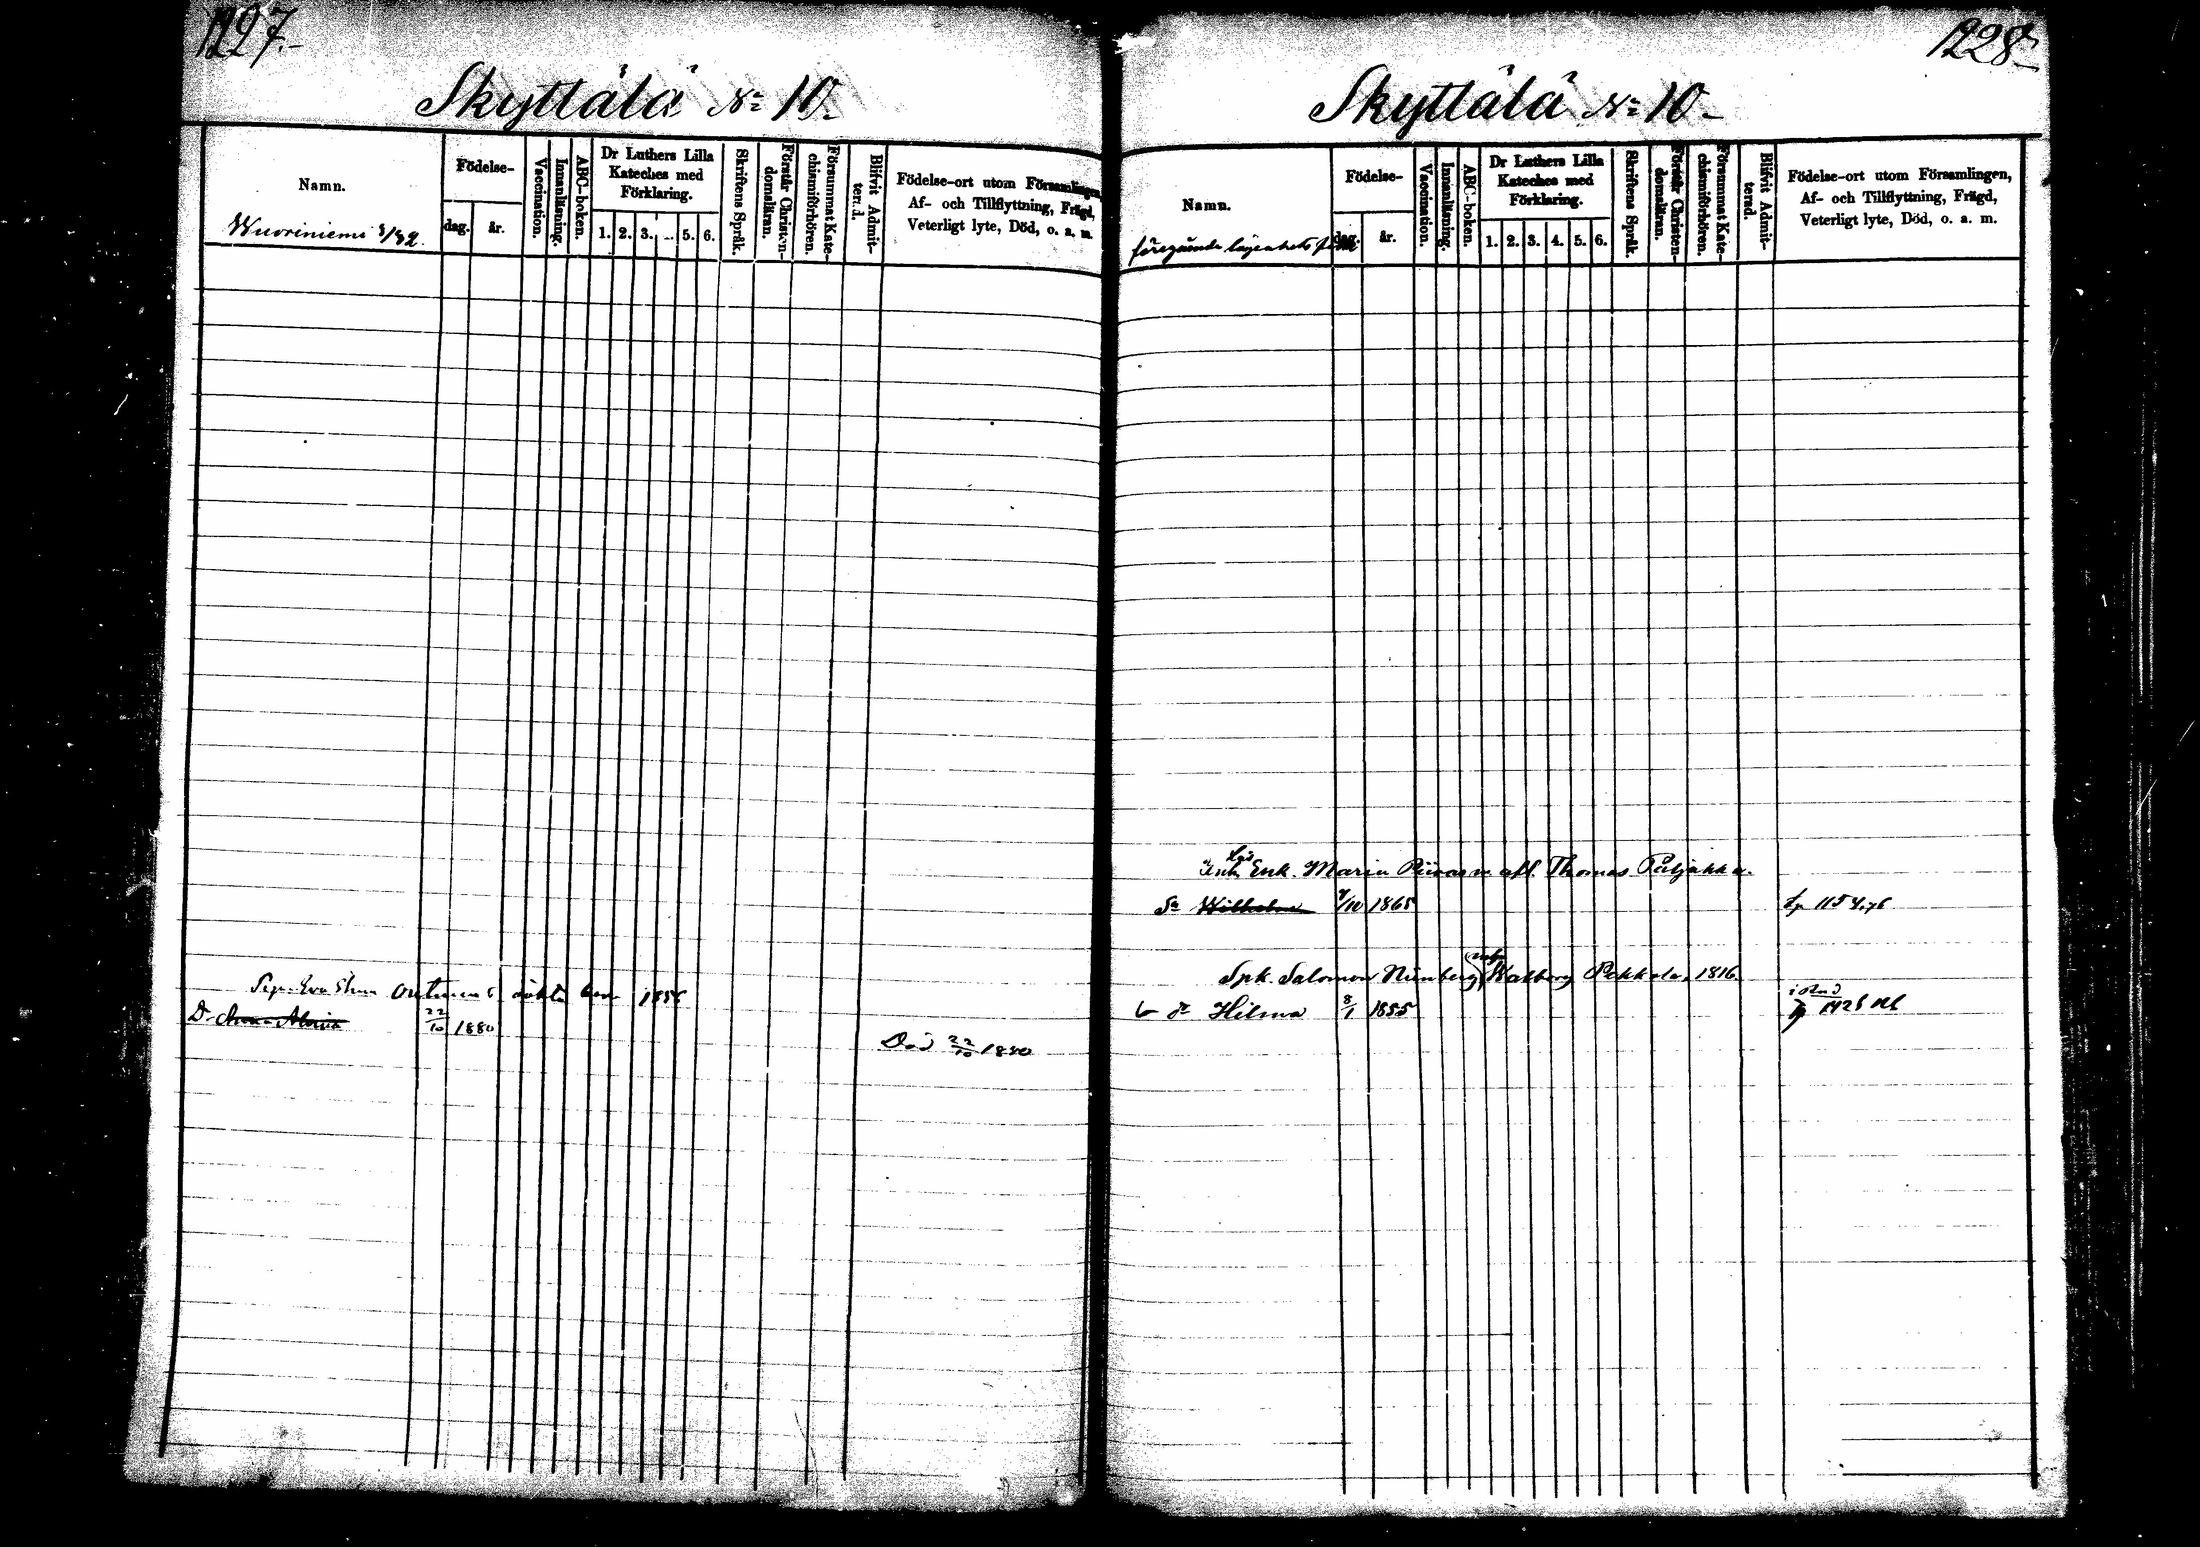 1227.
Skyttälä № 10.
Namn.
Wuoriniemi 1/32.
Födelse-
dag.
år.
Vaccination.
Innanläsning.
ABC-boken.
Dr Luthers Lilla
Kateches med
Förklaring.
1. 2. 3. 5. 6.
Skriftens Språk.
Förstår Christen-
domsläran.
Försummat Kate-
chismiförhören.
Blifvit Admit-
terad.
Födelse-ort utom Församlingen,
Af- och Tillflyttning, Frägd,
Veterligt lyte, Död, o. a. m.
1856
D-r
22/10 1880
Död 22/10 1880
1228
Skyttälä № 10
Namn.
föregående lägenhets
Födelse-
dag.
år.
Vaccination.
Innanläsning.
ABC-boken.
Dr Luthers Lilla
Kateches med
Förklaring.
1. 2. 3. 4. 5. 6.
Skriftens Språk.
Förstår Christen-
domsläran.
Försummat Kate-
chismiförhören.
Blifvit Admit-
terad.
Födelse-ort utom Församlingen,
Af- och Tillflyttning, Frägd,
Veterligt lyte, Död, o. a. m.
Enk. Maria afl. Thomas
Wilhelm 1865
Spk. Salomon Walborg Pekkala, 1816
Hilma 8/1 1855